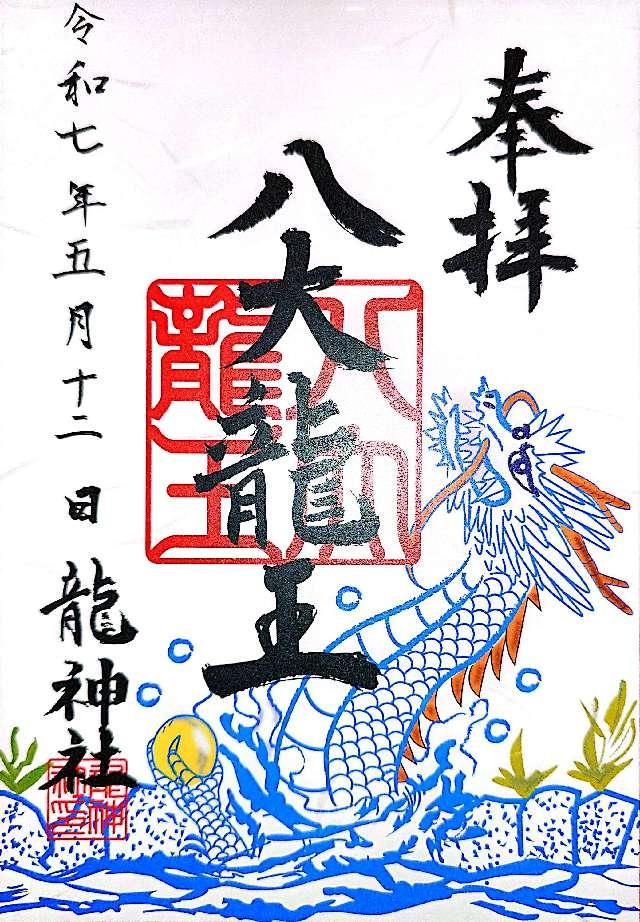 奉拝
八大龍王
令和七年五月十二日
龍神社
八大龍王